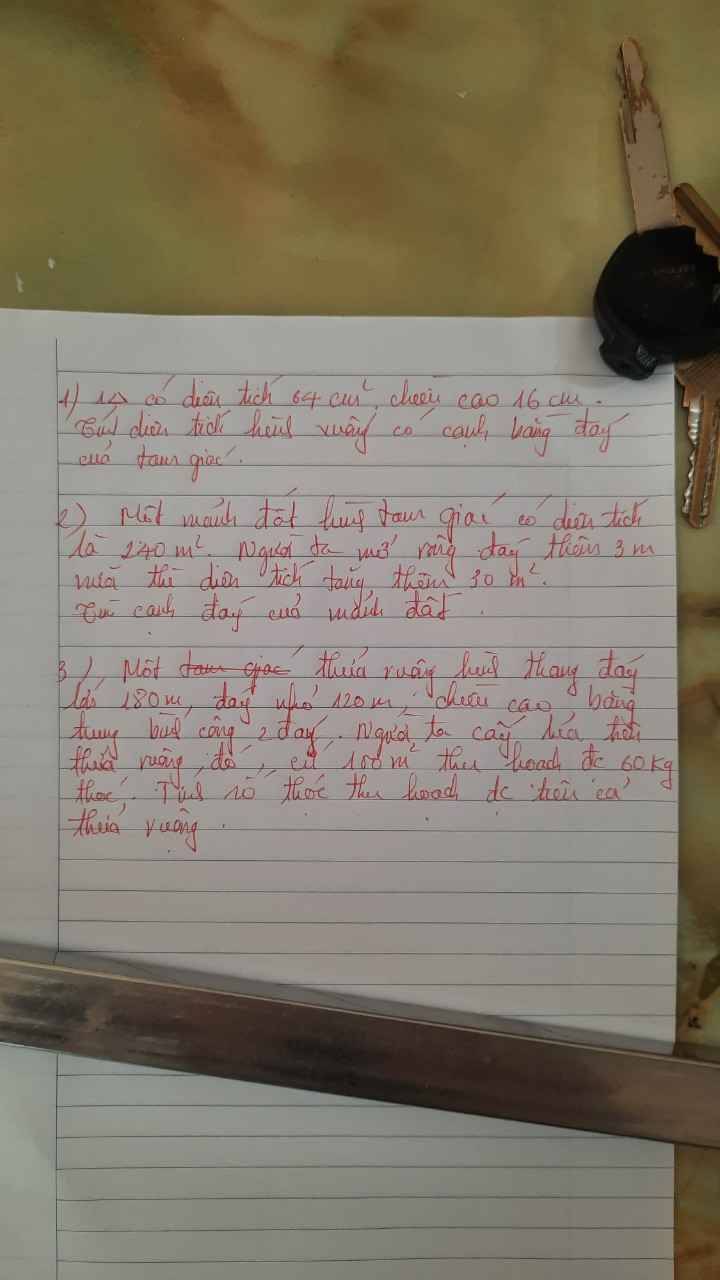 1) 1△ có diện tích 64 cm², chiều cao 16 cm.
Tính diện tích hình vuông có cạnh bằng đáy
của tam giác.
2) Một mảnh đất hình tam giác có diện tích
là 240 m². Người ta mở rộng đáy thêm 3 m
nữa thì diện tích tăng thêm 30 m².
Tính cạnh đáy của mảnh đất.
3) Một tam giác thửa ruộng hình thang đáy
lớn 180 m, đáy nhỏ 120 m, chiều cao bằng
trung bình cộng 2 đáy. Người ta cấy lúa trên
thửa ruộng đó, cứ 100 m² thu hoạch đc 60 kg
thóc. Tính số thóc thu hoạch đc trên cả
thửa ruộng.